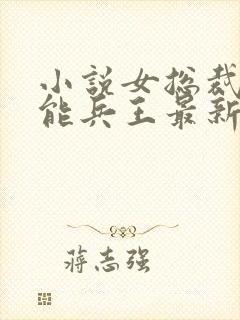 小说女总裁
能兵王最新
蒋志强